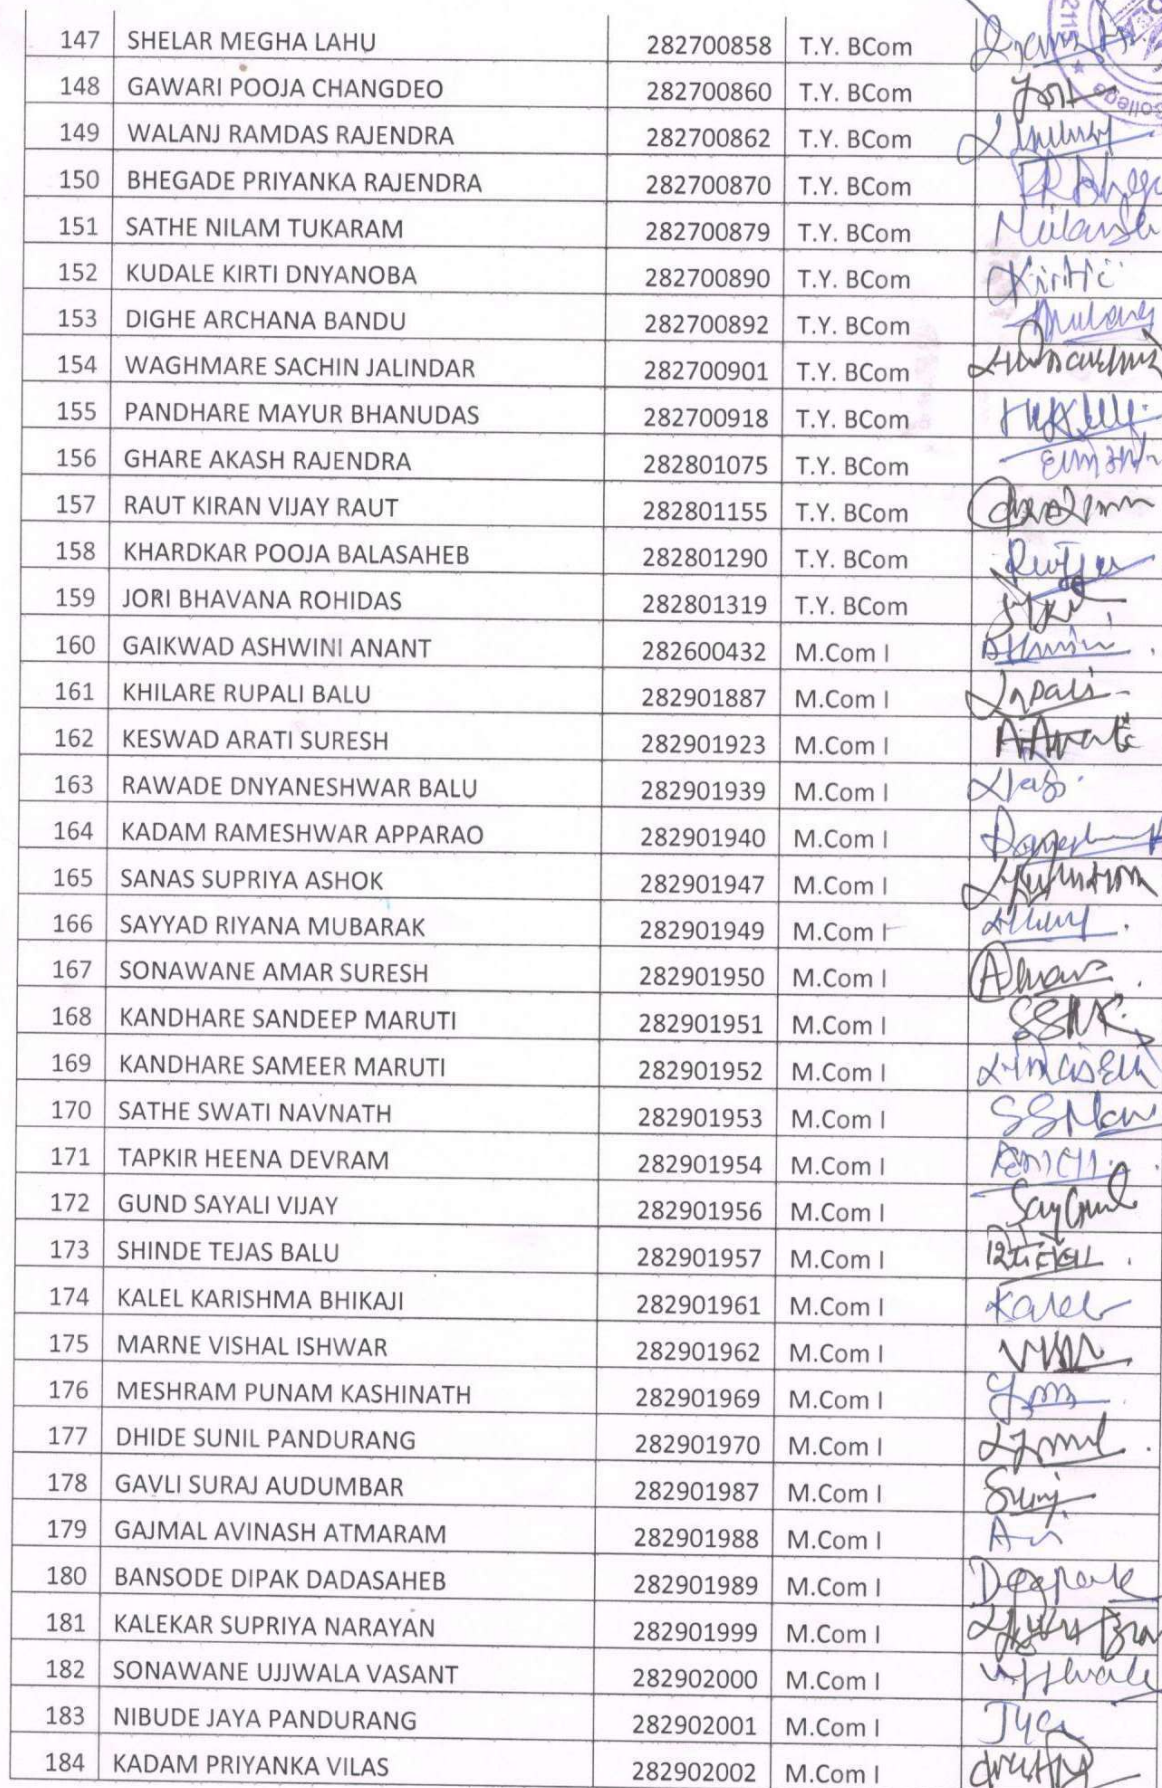 147 SHELAR MEGHA LAHU 282700858 T.Y. BCom
148 GAWARI POOJA CHANGDEO 282700860 T.Y. BCom
149 WALANJ RAMDAS RAJENDRA 282700862 T.Y. BCom
150 BHEGADE PRIYANKA RAJENDRA 282700870 T.Y. BCom
151 SATHE NILAM TUKARAM 282700879 T.Y. BCom
152 KUDALE KIRTI DNYANOBA 282700890 T.Y. BCom
153 DIGHE ARCHANA BANDU 282700892 T.Y. BCom
154 WAGHMARE SACHIN JALINDAR 282700901 T.Y. BCom
155 PANDHARE MAYUR BHANUDAS 282700918 T.Y. BCom
156 GHARE AKASH RAJENDRA 282801075 T.Y. BCom
157 RAUT KIRAN VIJAY RAUT 282801155 T.Y. BCom
158 KHARDKAR POOJA BALASAHEB 282801290 T.Y. BCom
159 JORI BHAVANA ROHIDAS 282801319 T.Y. BCom
160 GAIKWAD ASHWINI ANANT 282600432 M.Com I
161 KHILARE RUPALI BALU 282901887 M.Com I
162 KESWAD ARATI SURESH 282901923 M.Com I
163 RAWADE DNYANESHWAR BALU 282901939 M.Com I
164 KADAM RAMESHWAR APPARAO 282901940 M.Com I
165 SANAS SUPRIYA ASHOK 282901947 M.Com I
166 SAYYAD RIYANA MUBARAK 282901949 M.Com I
167 SONAWANE AMAR SURESH 282901950 M.Com I
168 KANDHARE SANDEEP MARUTI 282901951 M.Com I
169 KANDHARE SAMEER MARUTI 282901952 M.Com I
170 SATHE SWATI NAVNATH 282901953 M.Com I
171 TAPKIR HEENA DEVRAM 282901954 M.Com I
172 GUND SAYALI VIJAY 282901956 M.Com I
173 SHINDE TEJAS BALU 282901957 M.Com I
174 KALEL KARISHMA BHIKAJI 282901961 M.Com I
175 MARNE VISHAL ISHWAR 282901962 M.Com I
176 MESHRAM PUNAM KASHINATH 282901969 M.Com I
177 DHIDE SUNIL PANDURANG 282901970 M.Com I
178 GAVLI SURAJ AUDUMBAR 282901987 M.Com I
179 GAJMAL AVINASH ATMARAM 282901988 M.Com I
180 BANSODE DIPAK DADASAHEB 282901989 M.Com I
181 KALEKAR SUPRIYA NARAYAN 282901999 M.Com I
182 SONAWANE UJJWALA VASANT 282902000 M.Com I
183 NIBUDE JAYA PANDURANG 282902001 M.Com I
184 KADAM PRIYANKA VILAS 282902002 M.Com I